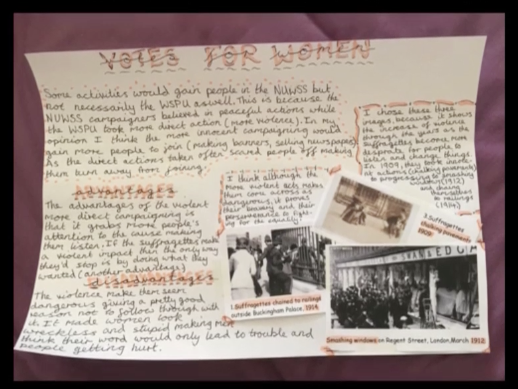 VOTES FOR WOMEN
Some activities would gain people in the NUWSS but
not necessarily the WSPU aswell. This is because the
NUWSS campaigners believed in peaceful actions while
the WSPU took more direct action (more violence). In my
opinion I think the more innocent campaigning would
gain more people to join (making banners, selling newspapers)
As the direct actions taken often scared people off making
them turn away from joining.
advantages
The advantages of the violent
more direct campaigning is
that it grabs more people's
attention to the cause making
them listen. If the suffragettes make
a violent impact then the only way
they'd stop is by doing what they
wanted (another advantage)
disadvantages
The violence make them seem
dangerous giving a pretty good
reason not to follow through with
it. It made women look
wreckless and stupid making men
think their word would only lead to trouble and
people getting hurt.
I think although the
more violent acts makes
them come across as
dangerous, it proves
their bravery and their
perseverance to fight
for the equality!
I chose these three
images because it shows
the increase of violence
through the years as the
suffragettes became more
desperate for people to
listen and change things.
In 1909, they took part
at actions (chalking pavements)
to progressing to smashing
windows (1912)
and chaining
themselves
to railings
(1914)
3.Suffragettes
chalking pavements
1909
1.Suffragettes chained to railings
outside Buckingham Palace, 1914
SWAN & EDGA
Smashing windows on Regent Street, London, March 1912